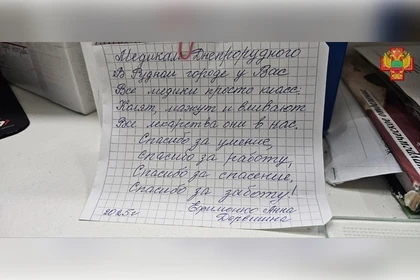 Медикам Днепрорудного
В Рудном городе у Вас
Все медики просто класс.
Колят, мажут и вливают
Все лекарства они в нас.
Спасибо за умение,
Спасибо за работу,
Спасибо за спасение,
Спасибо за заботу!
2025г
Ефименко Анна